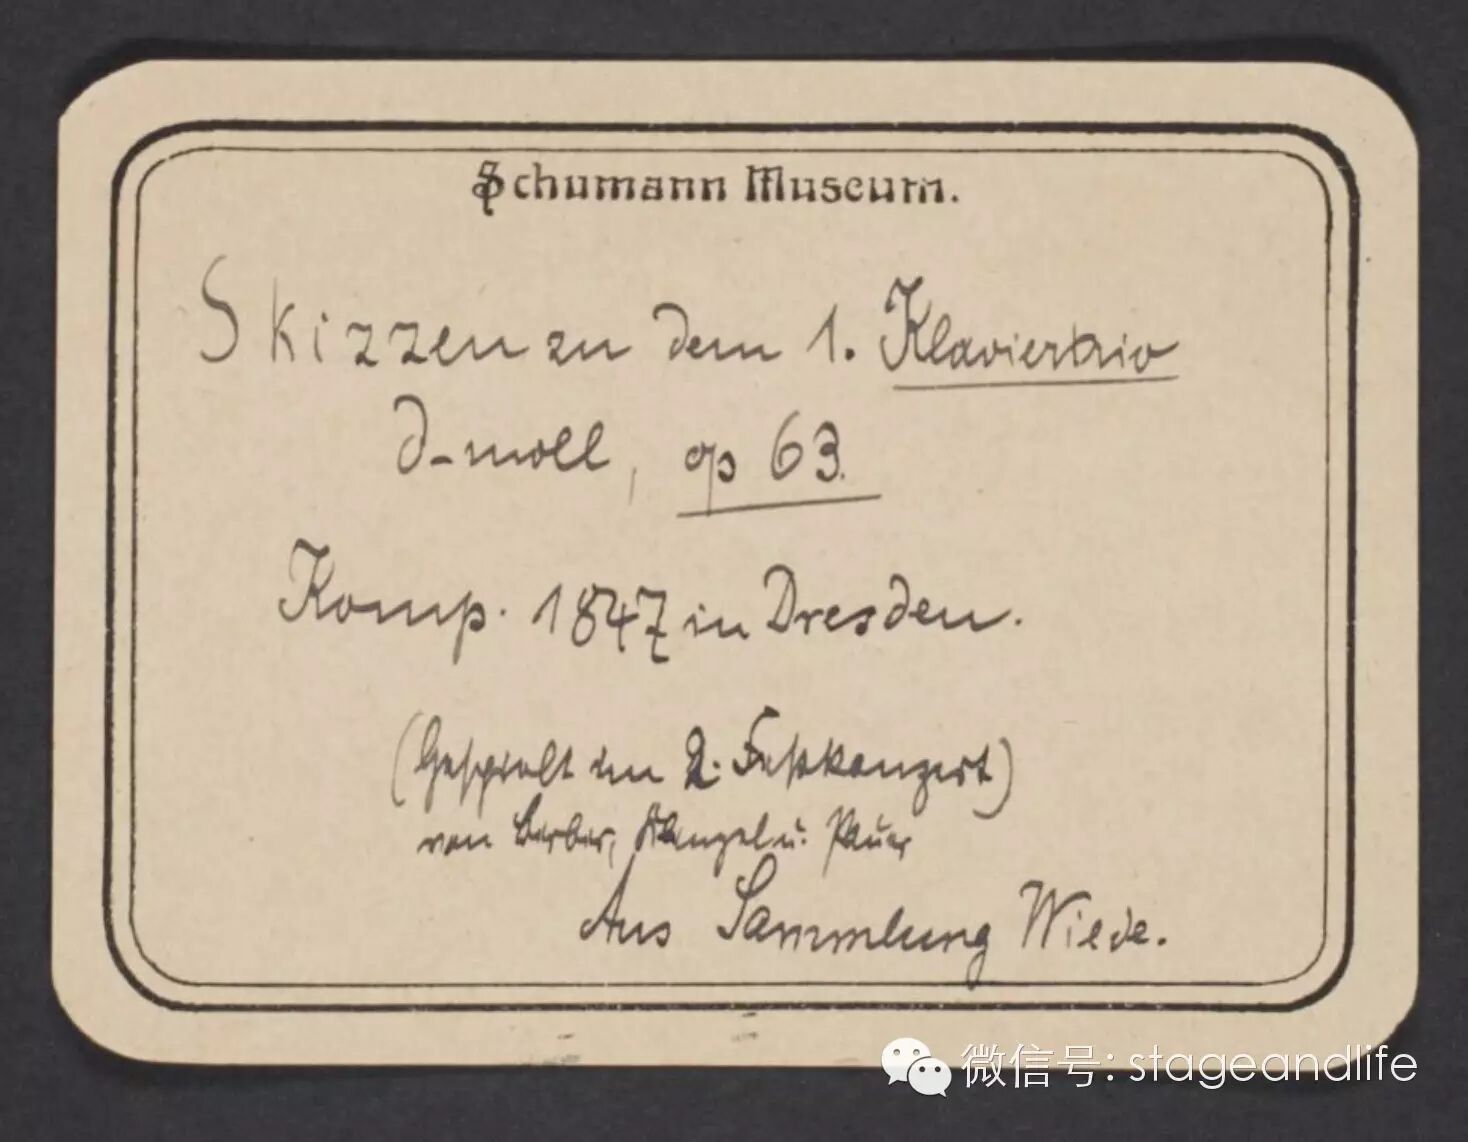 Schumann Museum.
Skizzen zu dem 1. Klaviertrio
d-moll, op 63.
Komp. 1847 in Dresden.
(Gespielt im 2. Festkonzert)
von Berber, u. Pauer
Aus Sammlung Wiede.
微信号: stageandlife